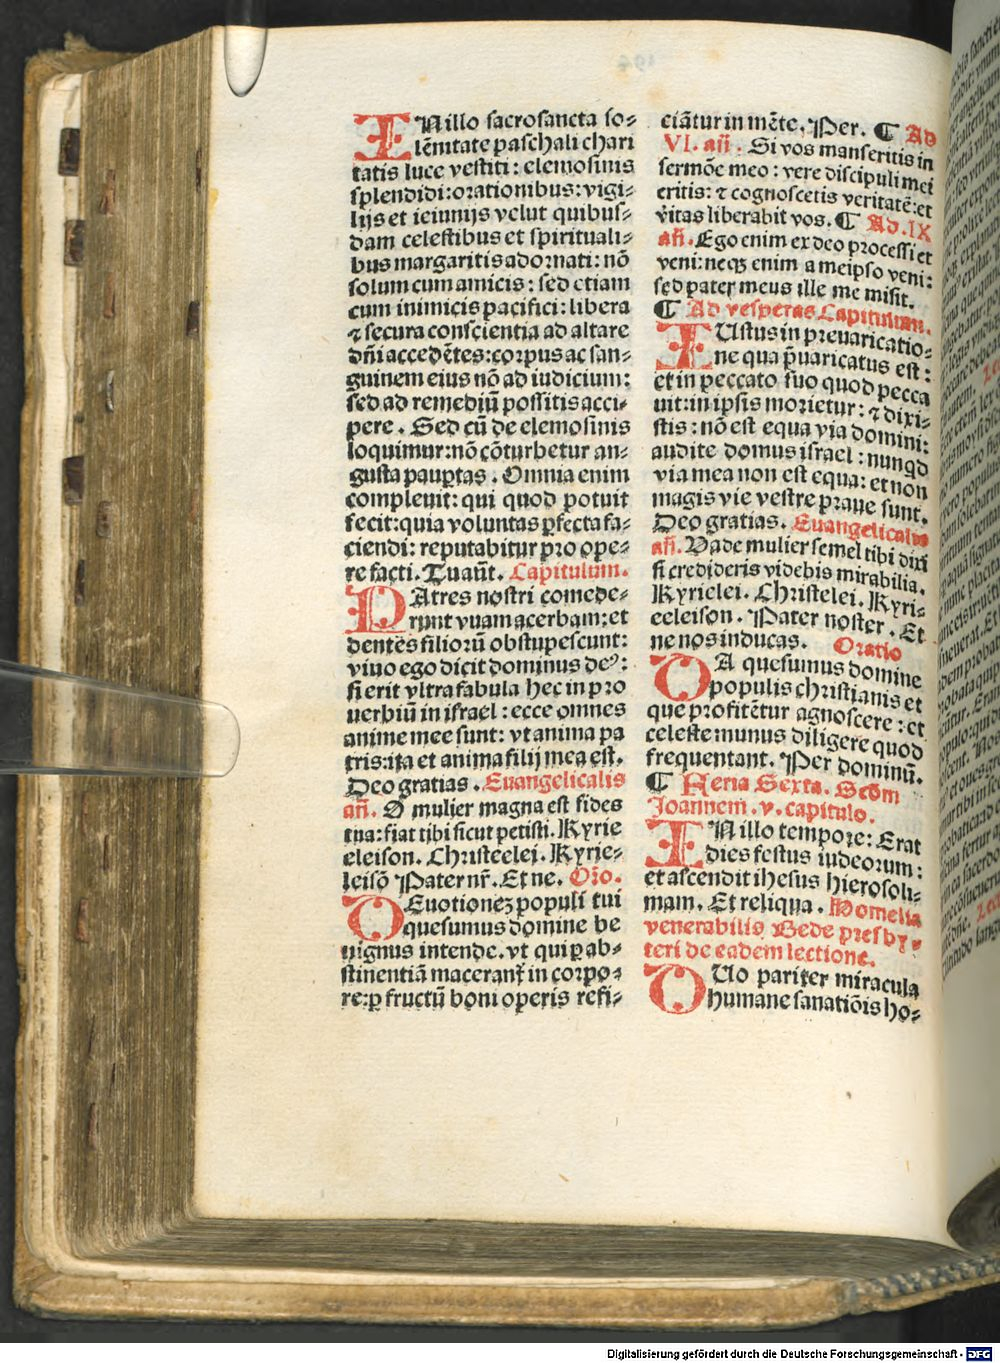 IN illo sacrosancta so⸗
lēnitate paschali chari
tatis luce vestiti : elemosinis
splendidi: orationibus: vigi⸗
lijs et ieiunijs velut quibus⸗
dam celestibus et spirituali⸗
bus margaritis adornati: nō
solum cum amicis : sed etiam
cum inimicis pacifici: libera
⁊ secura conscientia ad altare
dn̄i accedētes: corpus ac san⸗
guinem eius nō ad iudicium:
sed ad remediū possitis acci⸗
pere . Sed cū de elemosinis
loquimur: nō cōturbetur an⸗
gusta paup̱tas . Omnia enim
compleuit: qui quod potuit
fecit: quia voluntas ꝑfecta fa⸗
ciendi: reputabitur pro ope⸗
re facti. Tu aūt. Capitulum.
PAtres nostri comede⸗
runt vuam acerbam: et
dentes filiorū obstupescunt:
viuo ego dicit dominus deꝰ:
si erit vltra fabula hec in pro
uerbiū in israel : ecce omnes
anime mee sunt: vt anima pa
tris: ita et anima filij mea est.
Deo gratias . Euangelicalis
an̄. O mulier magna est fides
tua: fiat tibi sicut petisti. Kyrie
eleison. Christeelei. Kyrie⸗
leisō Pater nr̄. Et ne. Oro.
DEuotionem populi tui
quesumus domine be
nignus intende. vt qui ꝑ ab⸗
stinentiā macerant̄ in corpo⸗
re: ꝑ fructū boni operis refi⸗
ciātur in mēte. Per. ¶ Ad
VI. an̄ . Si vos manseritis in
sermōe meo : vere discipuli mei
eritis: ⁊ cognoscetis veritatē: et
v̄itas liberabit vos. ¶ Ad. IX
an̄. Ego enim ex deo processi et
veni: neqꝫ enim a meipso veni:
sed pater meus ille me misit.
¶ Ad vesperas Capitulum.
IUstus in preuaricatio⸗
ne qua p̄uaricatus est :
et in peccato suo quod pecca
uit: in ipsis morietur : ⁊ dixi⸗
stis : nō est equa via domini:
audite domus israel : nunqd
via mea non est equa: et non
magis vie vestre praue sunt.
Deo gratias. Euangelicalis
an̄. Uade mulier semel tibi dixi
si credideris videbis mirabilia.
Kyrielei. Christelei. Kyri⸗
eeleison. Pater noster. Et
ne nos inducas. Oratio
DA quesumus domine
populis christianis et
que profitētur agnoscere : et
celeste munus diligere quod
frequentant. Per dominū.
¶ Feria Sexta. Scōm
Joannem. v. capitulo.
IN illo tempore: Erat
dies festus iudeorum :
et ascendit ihesus hierosoli⸗
mam. Et reliqua. Homelia
venerabilis Bede presby⸗
teri de eadem lectione.
DUo pariter miracula
humane sanatiōis ho⸗
Digitalisierung gefördert durch die Deutsche Forschungsgemeinschaft - DFG